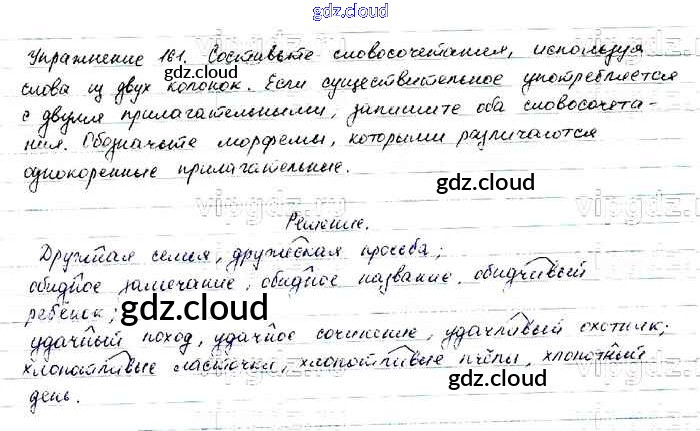 gdz.cloud
Упражнение 161. Составьте словосочетания, используя
слова из двух колонок. Если существительное употребляется
gdz.cloud
с двумя прилагательными, запишите оба словосочета-
ния. Обозначьте морфемы, которыми различаются
однокоренные прилагательные.
gdz.cloud
Решение.
Дружная семья, дружеская просьба;
обидное замечание, обидное название, обидчивый
ребёнок;
gdz.cloud
удачный поход, удачное сочинение, удачливый охотник;
хлопотливые ласточки, хлопотливые пчёлы, хлопотный
gdz.cloud
день.